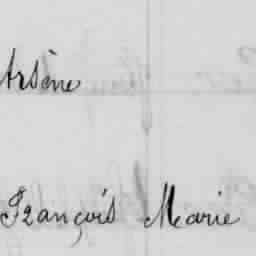 Arsène
François Marie